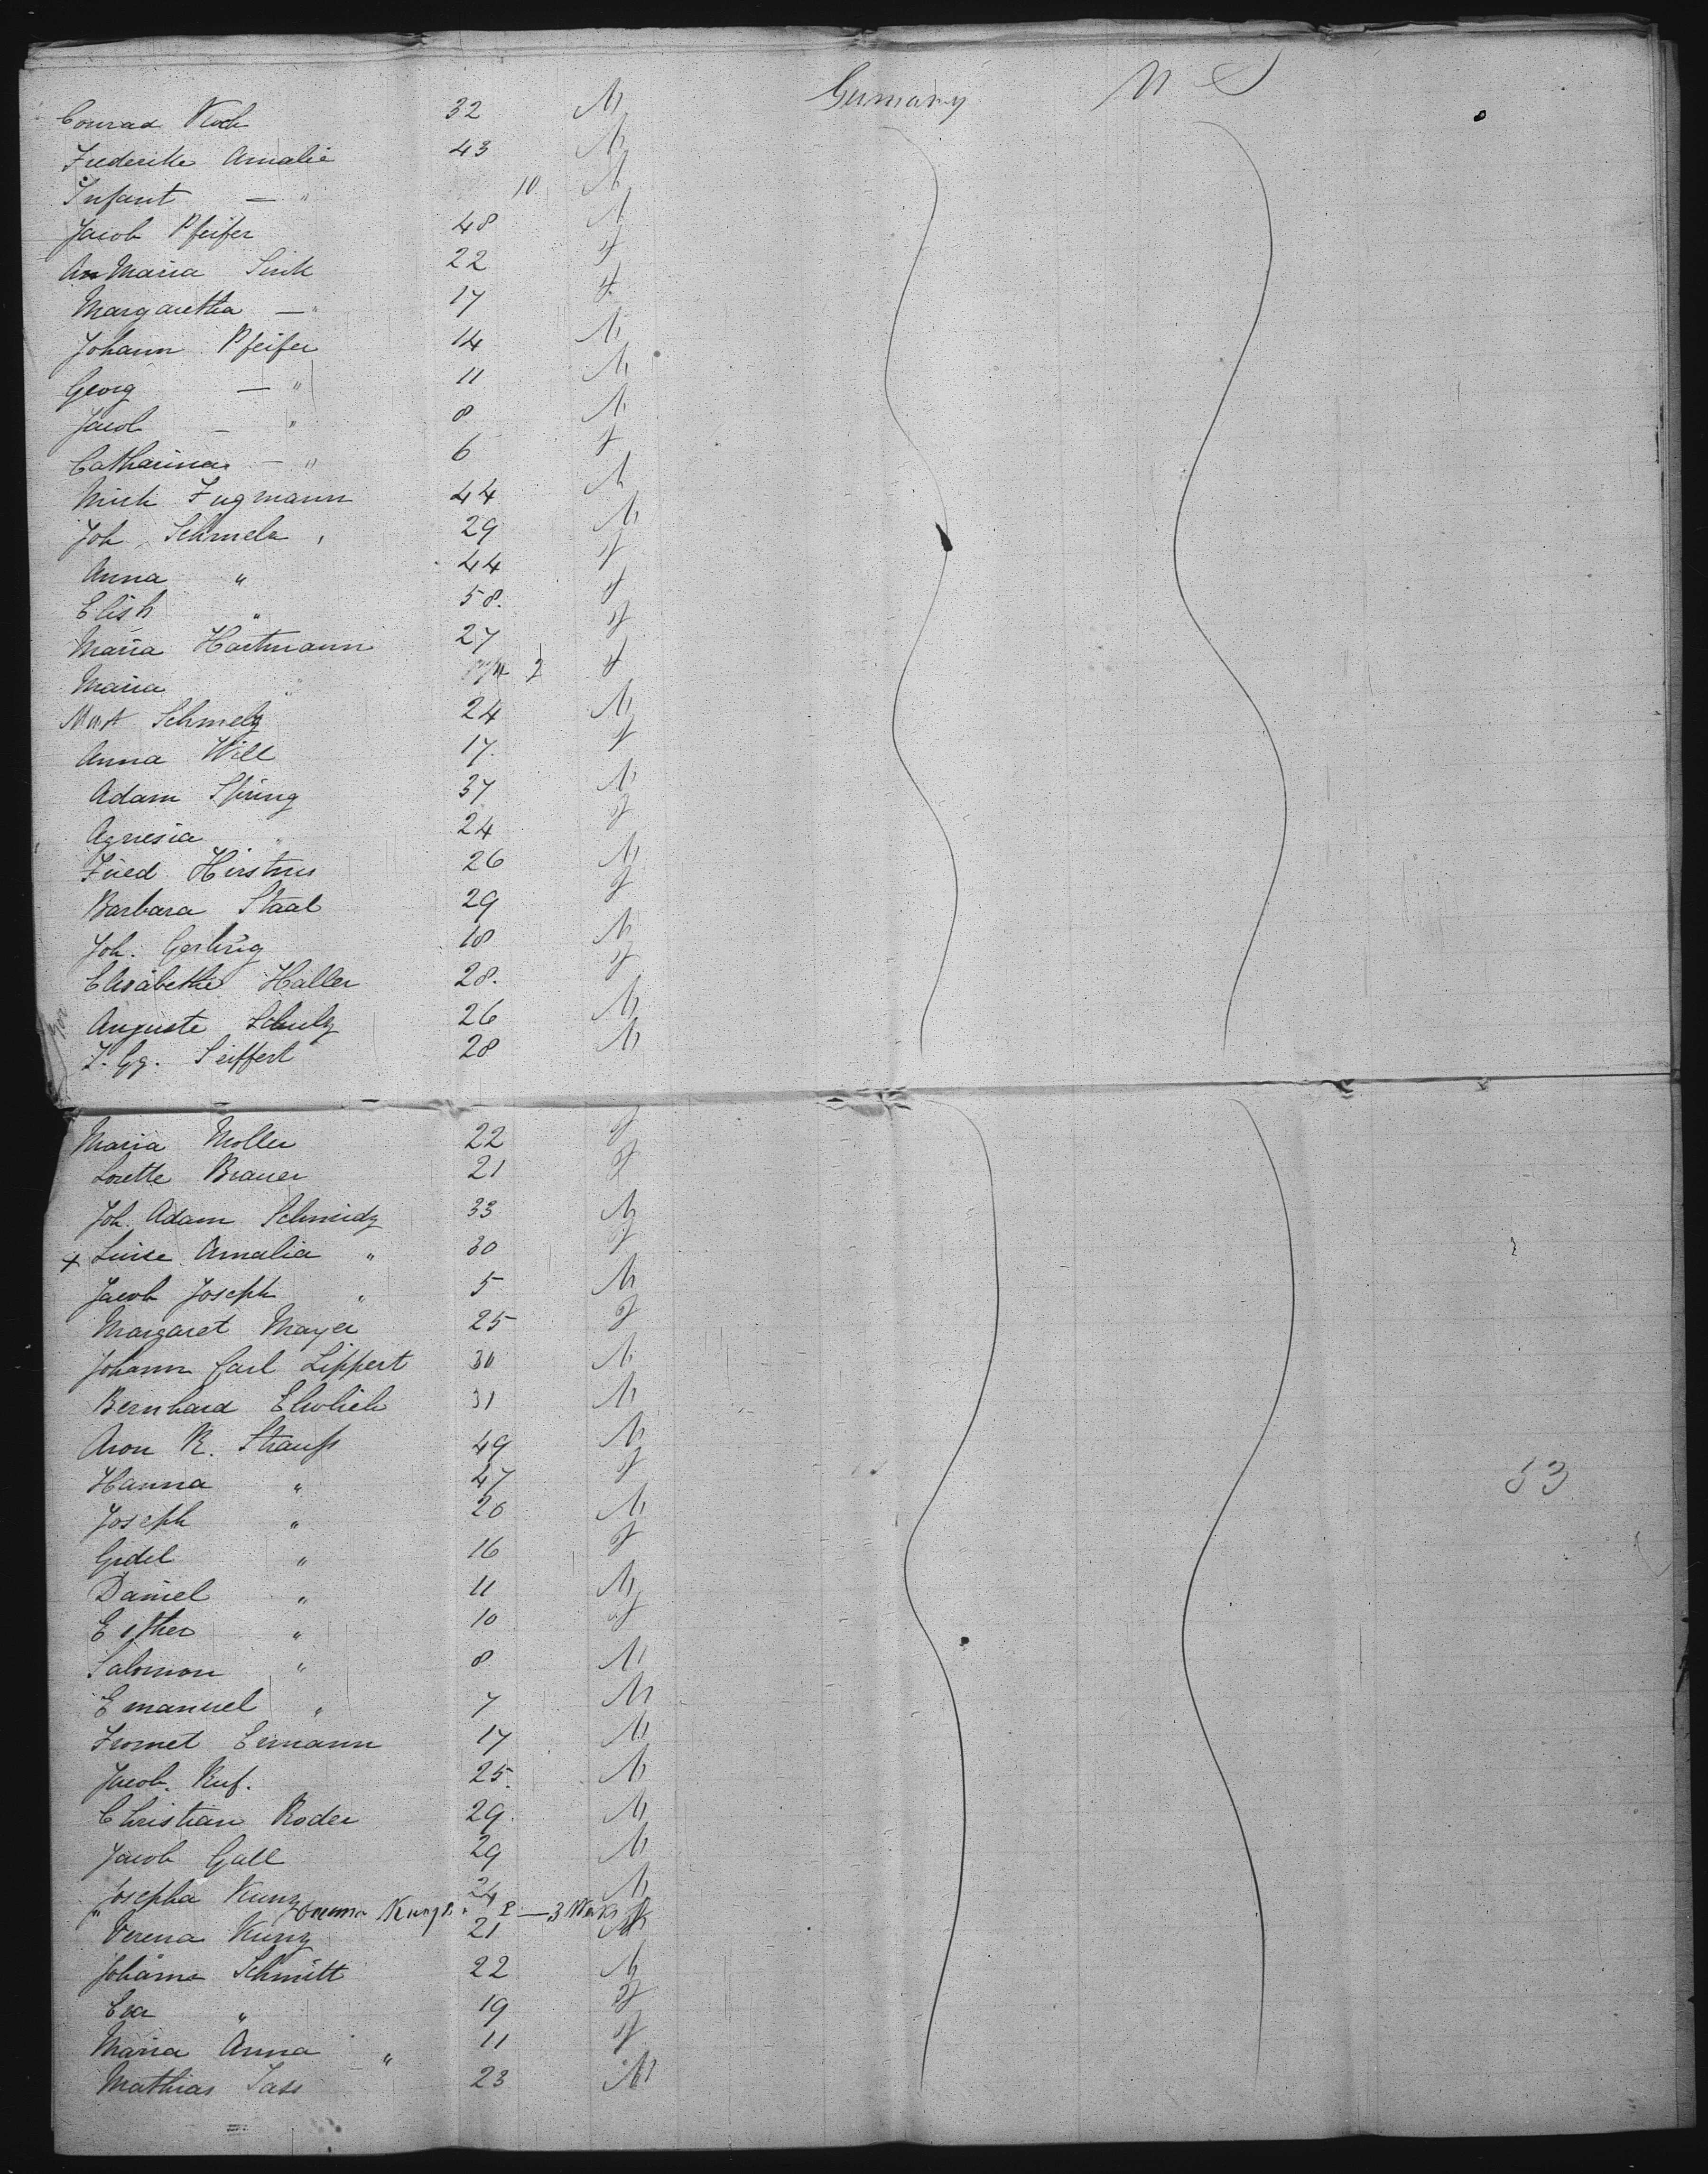 Conrad Koch 32 M Germany U S
Frederike Amalie 43 M
Infant — " 10 M
Jacob Pfeifer 48 M
An Maria 22 f
Margaretha — " 17 f
Johann Pfeifer 14 M
Georg — " 11 M
Jacob — " 8 M
Catharina — " 6 f
Mich Fugmann 44 M
Joh Schmelz 29 M
Anna " 44 f
Elisb " 58 f
Maria Hartmann 27 f
Maria " f
Mart Schmelz 24 M
Anna Will 17 f
Adam Spring 37 M
Agnesia " 24 f
Fried 26 M
Barbara Staal 29 f
Joh. Gerling 18 M
Elisabethe Haller 28 f
Auguste Schulz 26 M
J. Gg. Seiffert 28 M
Maria Moller 22 f
Lorette Brauer 21 f
Joh. Adam Schmidz 33 M
x Luise Amalia " 30 f
Jacob Joseph " 5 M
Margaret Mayer 25 f
Johann Carl Lippert 30 M
Bernhard 31 M
Aron R. Strauß 49 M
Hanna " 47 f 53
Joseph " 20 M
Gidel " 16 f
Daniel " 11 M
Esther " 10 f
Salomon " 8 M
Emanuel " 7 M
Fromet Ermann 17 M
Jacob Ruf. 25 M
Christian Roder 29 M
Jacob Gall 29 M
Josepha Kunz 24 M
" Kunz 3
Verena Kunz 21
Johann Schmitt 22 M
Eva " 19 f
Maria Anna " 11 f
Mathias Sass 23 M